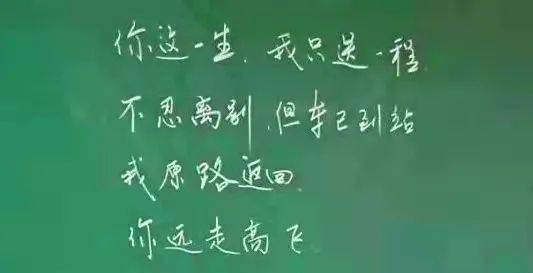 你这一生,我只送一程,
不忍离别,但车已到站
我原路返回,
你远走高飞